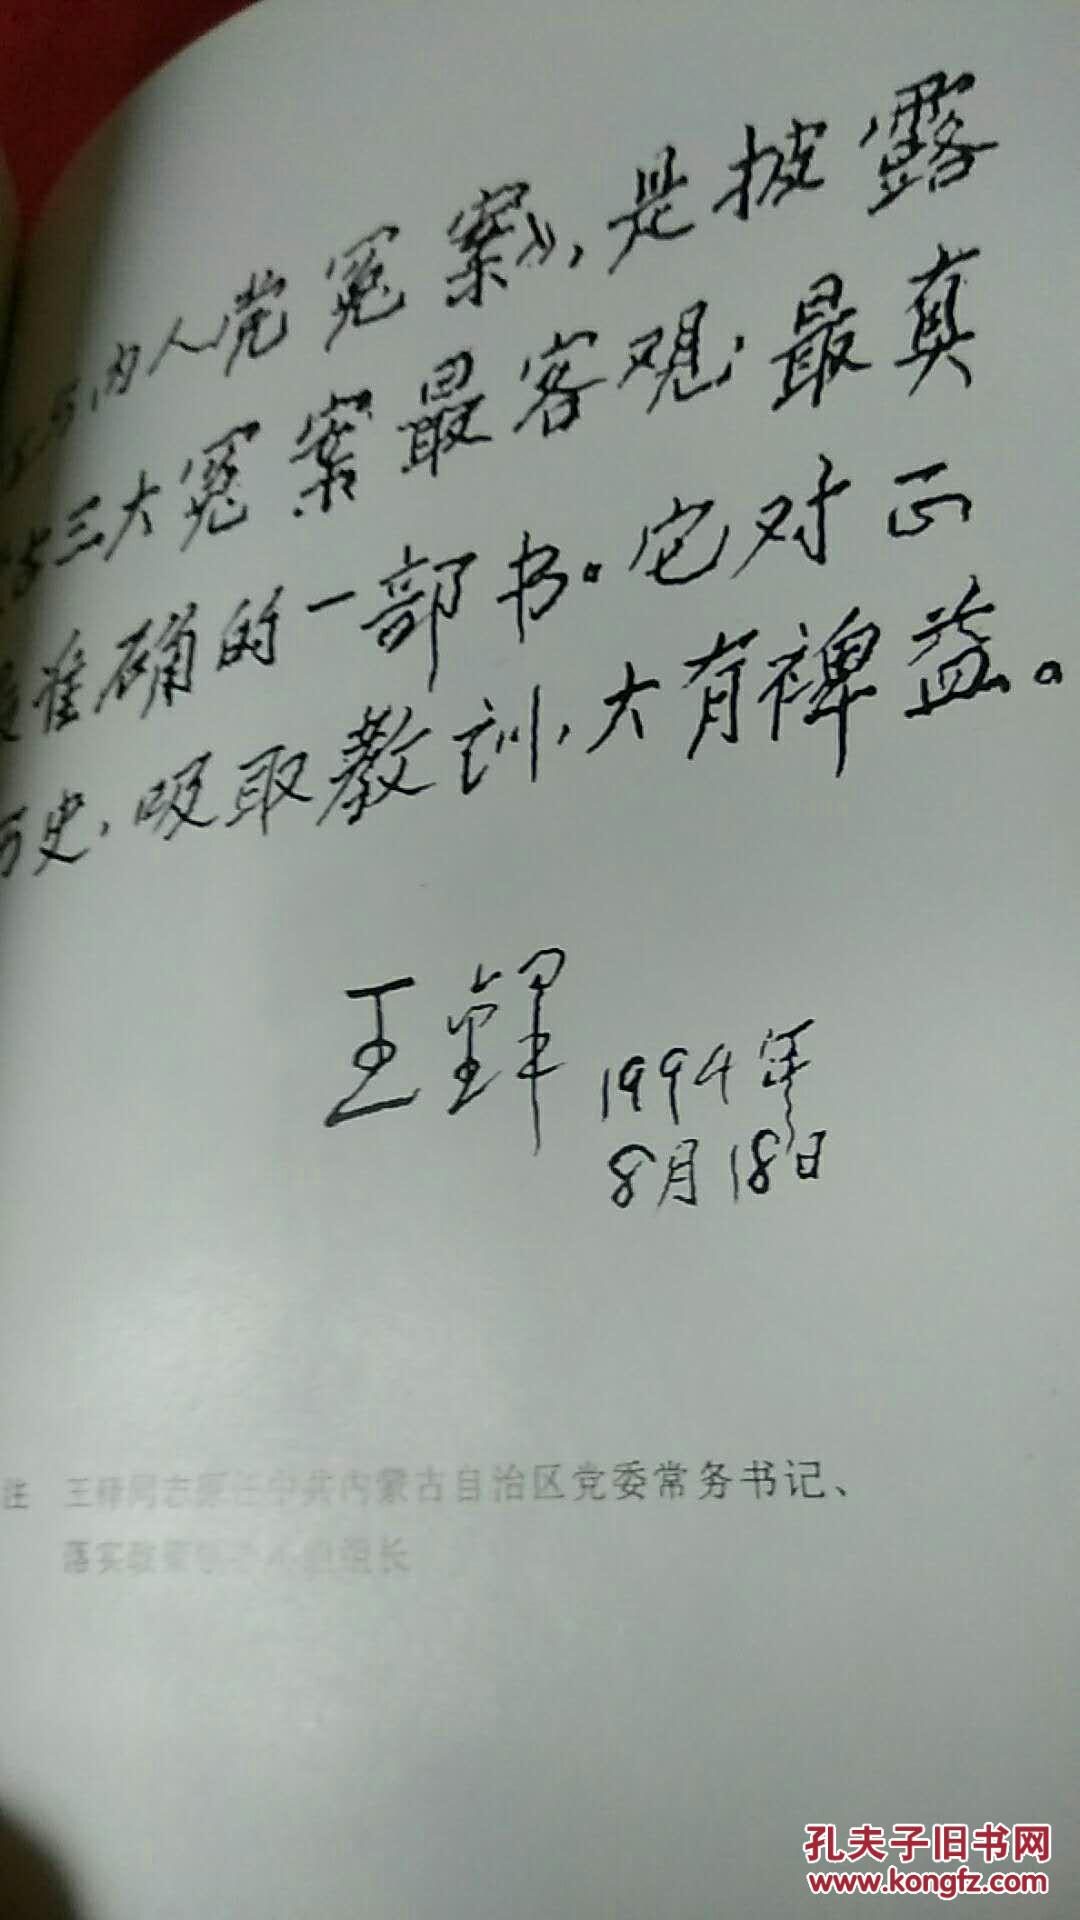 与内人党冤案》，是披露
三大冤案最客观、最真
准确的一部书。它对正
历史，吸取教训，大有裨益。
王铎 1994年
8月18日
注 王铎同志原任中共内蒙古自治区党委常务书记、
落实政策领导小组组长
孔夫子旧书网
www.kongfz.com